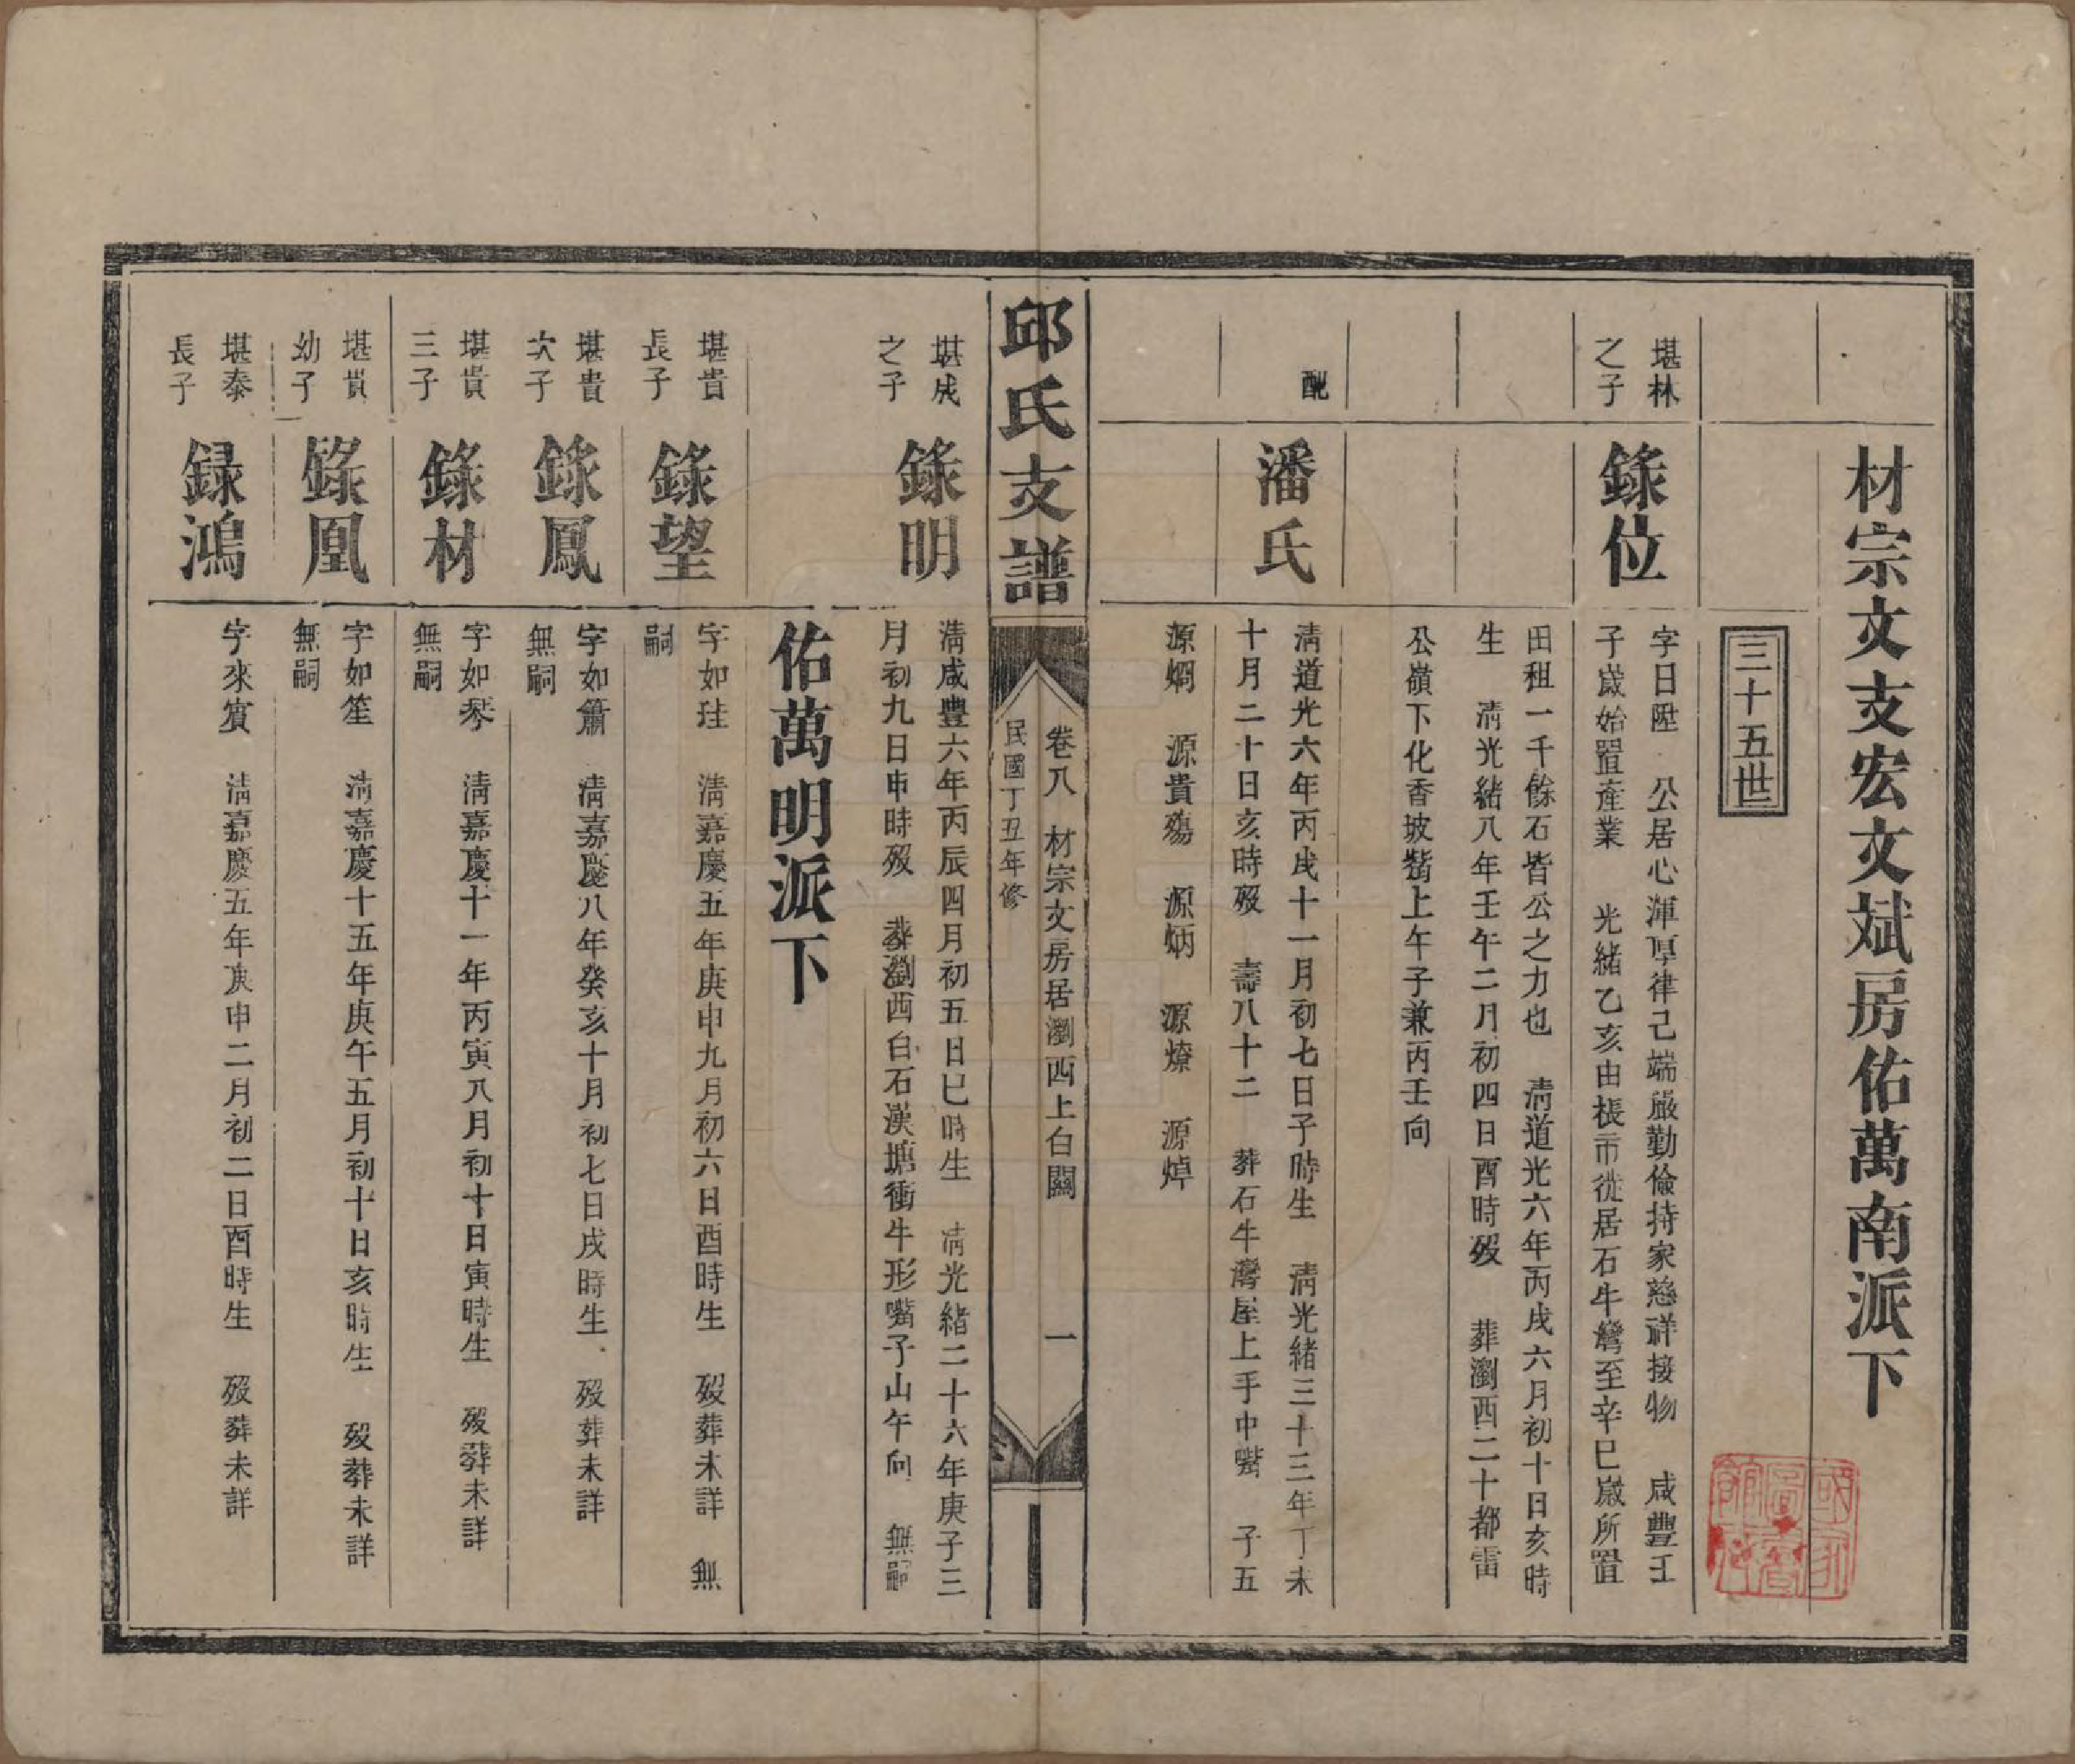 材宗文支宏文斌房佑萬南派下
三十五世
堪林
之子
錄位
字日陞　公居心渾厚律己端嚴勤儉持家慈祥接物　咸豐壬
子歲始置產業　光緒乙亥由棖市徙居石牛灣至辛巳歲所置
田租一千餘石皆公之力也　清道光六年丙戌六月初十日亥時
生　清光緒八年壬午二月初四日酉時歿　葬瀏西二十都雷
公嶺下化香坡嘴上午子兼丙壬向
配
潘氏
清道光六年丙戌十一月初七日子時生　清光緒三十三年丁未
十月二十日亥時歿　壽八十二　葬石牛灣屋上手中嘴　子五
源燗　源貴殤　源炳　源燎　源焯
邱氏支譜
卷八　材宗文房居瀏西上白關　一
民國丁丑年修
堪成
之子
錄明
清咸豐六年丙辰四月初五日巳時生　清光緒二十六年庚子三
月初九日申時歿　葬瀏西白石漢塘衝牛形嘴子山午向　無嗣
佑萬明派下
堪貴
長子
錄望
字如珪　清嘉慶五年庚申九月初六日酉時生　歿葬未詳　無
嗣
堪貴
次子
錄鳳
字如簫　清嘉慶八年癸亥十月初七日戌時生　歿葬未詳
無嗣
堪貴
三子
錄材
字如琴　清嘉慶十一年丙寅八月初十日寅時生　歿葬未詳
無嗣
堪貴
幼子
錄凰
字如笙　清嘉慶十五年庚午五月初十日亥時生　歿葬未詳
無嗣
堪泰
長子
録鴻
字來賓　清嘉慶五年庚申二月初二日酉時生　歿葬未詳